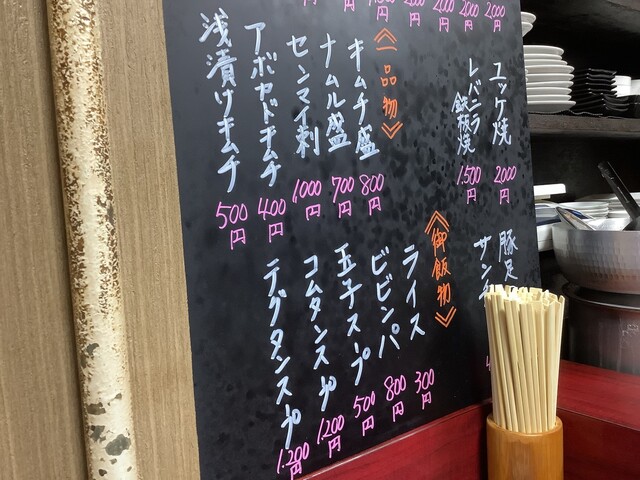 ユッケ焼
2000円
レバニラ鉄板焼
1,500円
《一品物》
キムチ盛
800円
ナムル盛
700円
センマイ刺
1,000円
アボカドキムチ
400円
浅漬けキムチ
500円
豚足
《御飯物》
ライス
300円
ビビンバ
800円
玉子スープ
500円
コムタンスープ
1,200円
テグタンスープ
1,200円